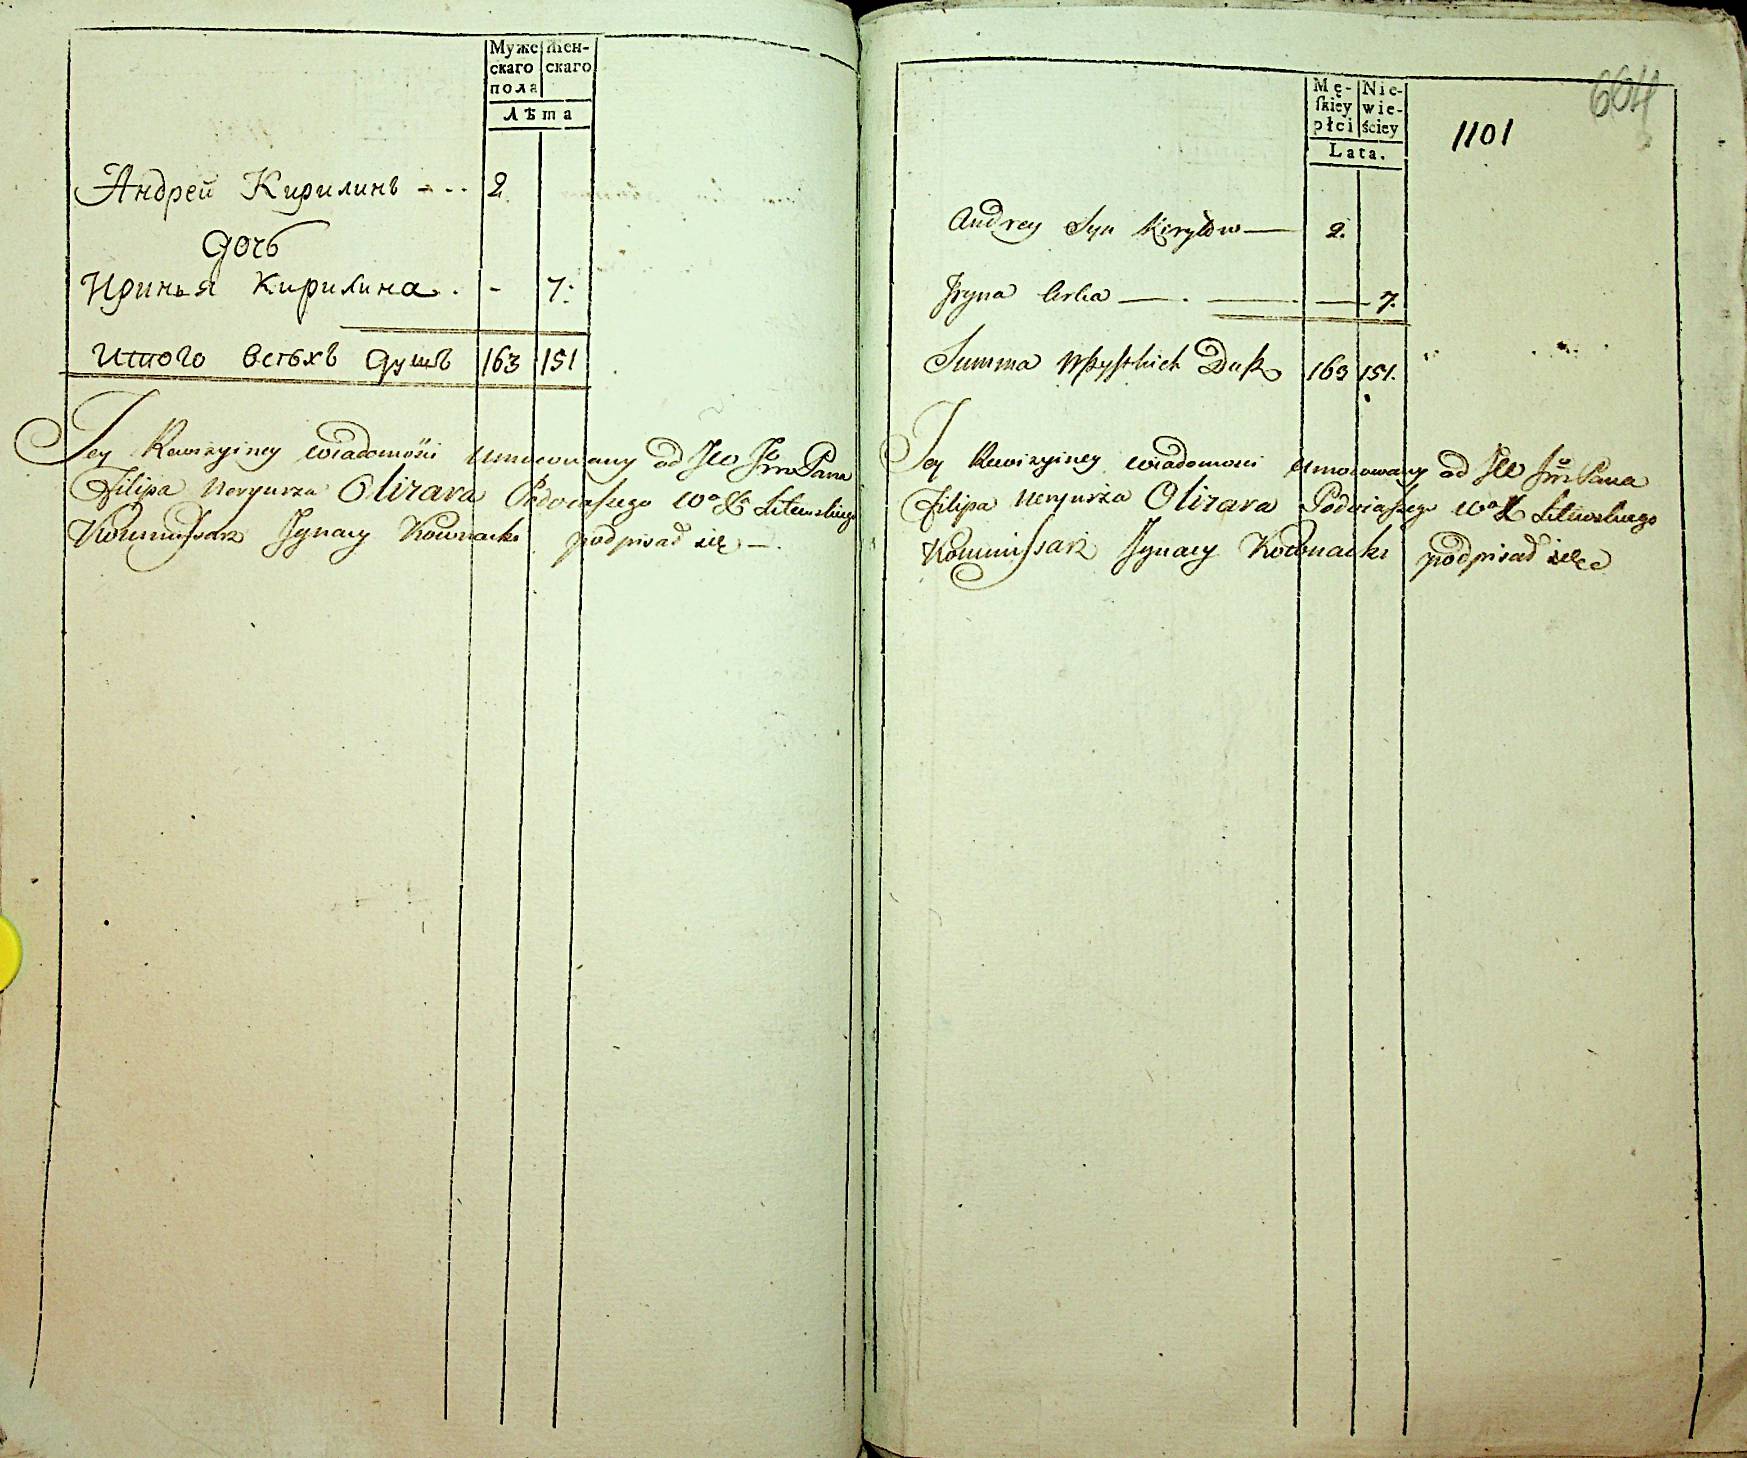 Муже
скаго
пола
Жен-
скаго
Лѣта
Андрей Кирилинъ - - - 2
дочь
Иринья Кирилина . - 7:
Итого всѣхъ душъ 163 151
Tey Rewizyiney wiadomości umocowany od JW Jmci Pana
Filipa Nereusza Olizara Podczaszego Wo X Litewskiego
Kommissarz Jgnacy Kownacki podpisał się —.
Mę-
skiey
płci
Nie-
wie-
ściey
Lata.
1101
664
Andrey Syn Kiryłow — 2.
Jryna Corka — . — — 7.
Summa Wszystkich Dusz 163 151.
Tey Rewizyiney wiadomosci umocowany od JW Jmci Pana
Filipa Nereusza Olizara Podczaszego Wo X Litewskiego
Kommissarz Jgnacy Kownacki podpisał się